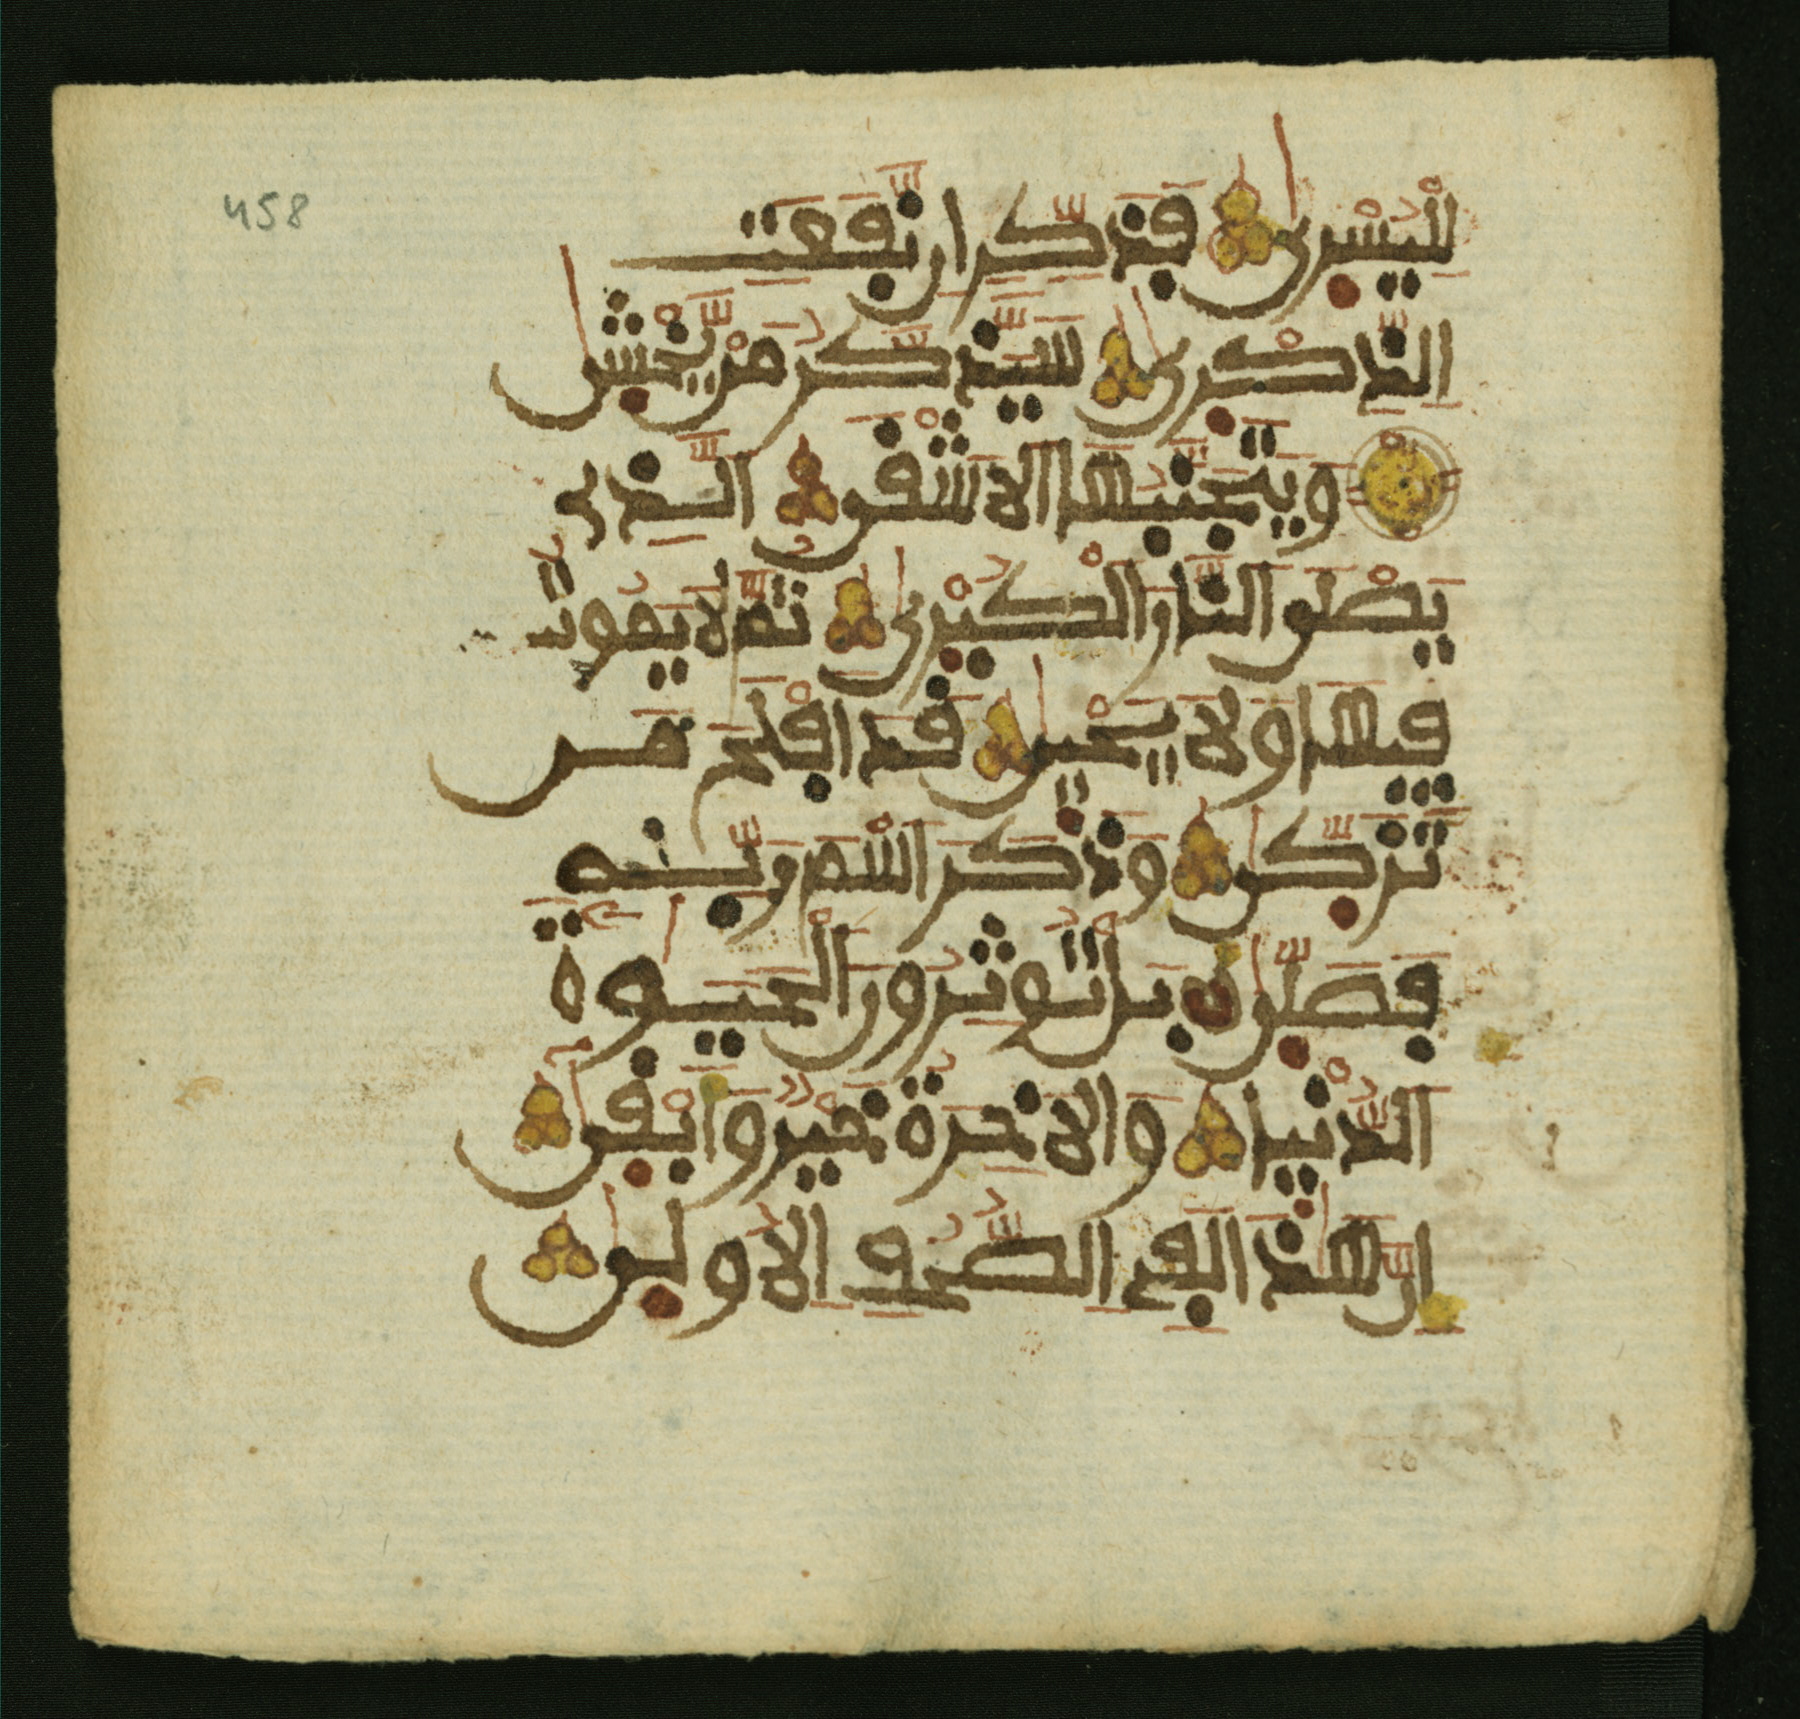 458
لليسرى فذكر ان نفعت
الذكرى سيذكر من يخشى
ويتجنبها الاشقى الذى
يصلى النار الكبرى ثم لا يموت
فيها ولا يحيى قد افلح من
تزكى وذكر اسم ربه
فصلى بل تؤثرون الحيوة
الدنيا والاخرة خير وابقى
ان هذا لفى الصحف الاولى